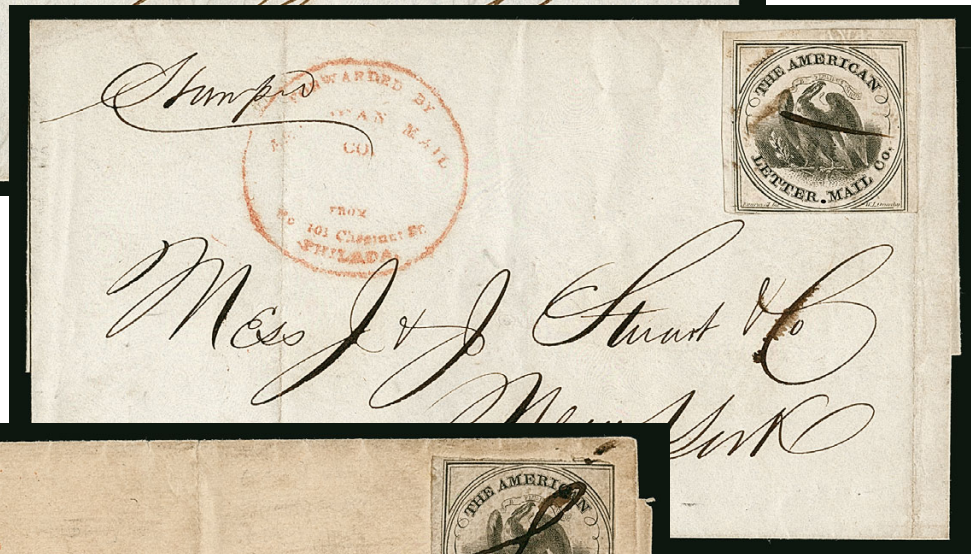 Stamped
FORWARDED BY
MAIL
CO.
FROM
No 101 Chesnut St.
PHILADA
THE AMERICAN
LETTER. MAIL Co.
Mess J & J Stuart & Co
New York
THE AMERICAN